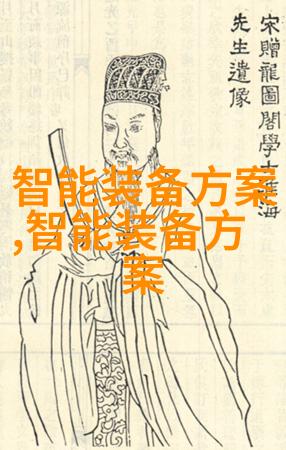 宋贈龍圖閣學士淮海
先生遺像
智能装备方案
,智能装备方
案